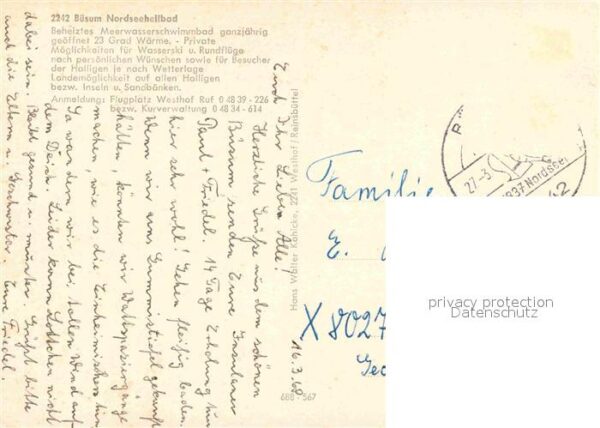 2242 Büsum Nordseeheilbad
Beheiztes Meerwasserschwimmbad ganzjährig
geöffnet 23 Grad Wärme. - Private
Möglichkeiten für Wasserski u. Rundflüge
nach persönlichen Wünschen sowie für Besucher
der Halligen je nach Wetterlage
Landemöglichkeit auf allen Halligen
bezw. Inseln u. Sandbänken.
Anmeldung: Flugplatz Westhof Ruf 0 48 39 - 226
bezw. Kurverwaltung 0 48 34 - 614
16.3.68
Euch Ihr Lieben Alle!
Herzliche Grüße aus dem schönen
Büsum senden Eure Insulaner
Paul + Friedel. 14 Tage Erholung tun
hier sehr wohl! Gehen fleißig baden.
Wenn wir uns Gummistiefel gekauft
hätten, könnten wir Wattspaziergänge
machen, wie es die Einheimischen tun
So waren wir bei tollen Wind auf
dem Deich. Leider kann Lottchen nicht
dabei sein. Bleibt gesund u. munter. Grüßt bitte
auch die Eltern u. Geschwister. Eure Friedel.
Hans Walter Kahlcke, 2241 Westhof / Reinsbüttel
688 - 567
Familie
E.
X 8027
27-3
Nordsee
privacy protection
Datenschutz